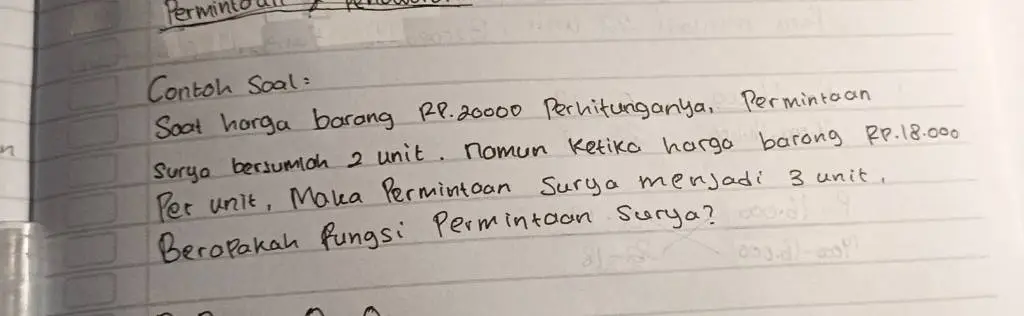 Permintaan / Penawaran
Contoh Soal:
Saat harga barang Rp.20000 Perhitunganya, Permintaan
Surya berjumlah 2 unit. namun ketika harga barang Rp.18.000
Per unit, Maka Permintaan Surya menjadi 3 unit.
Berapakah fungsi Permintaan Surya?